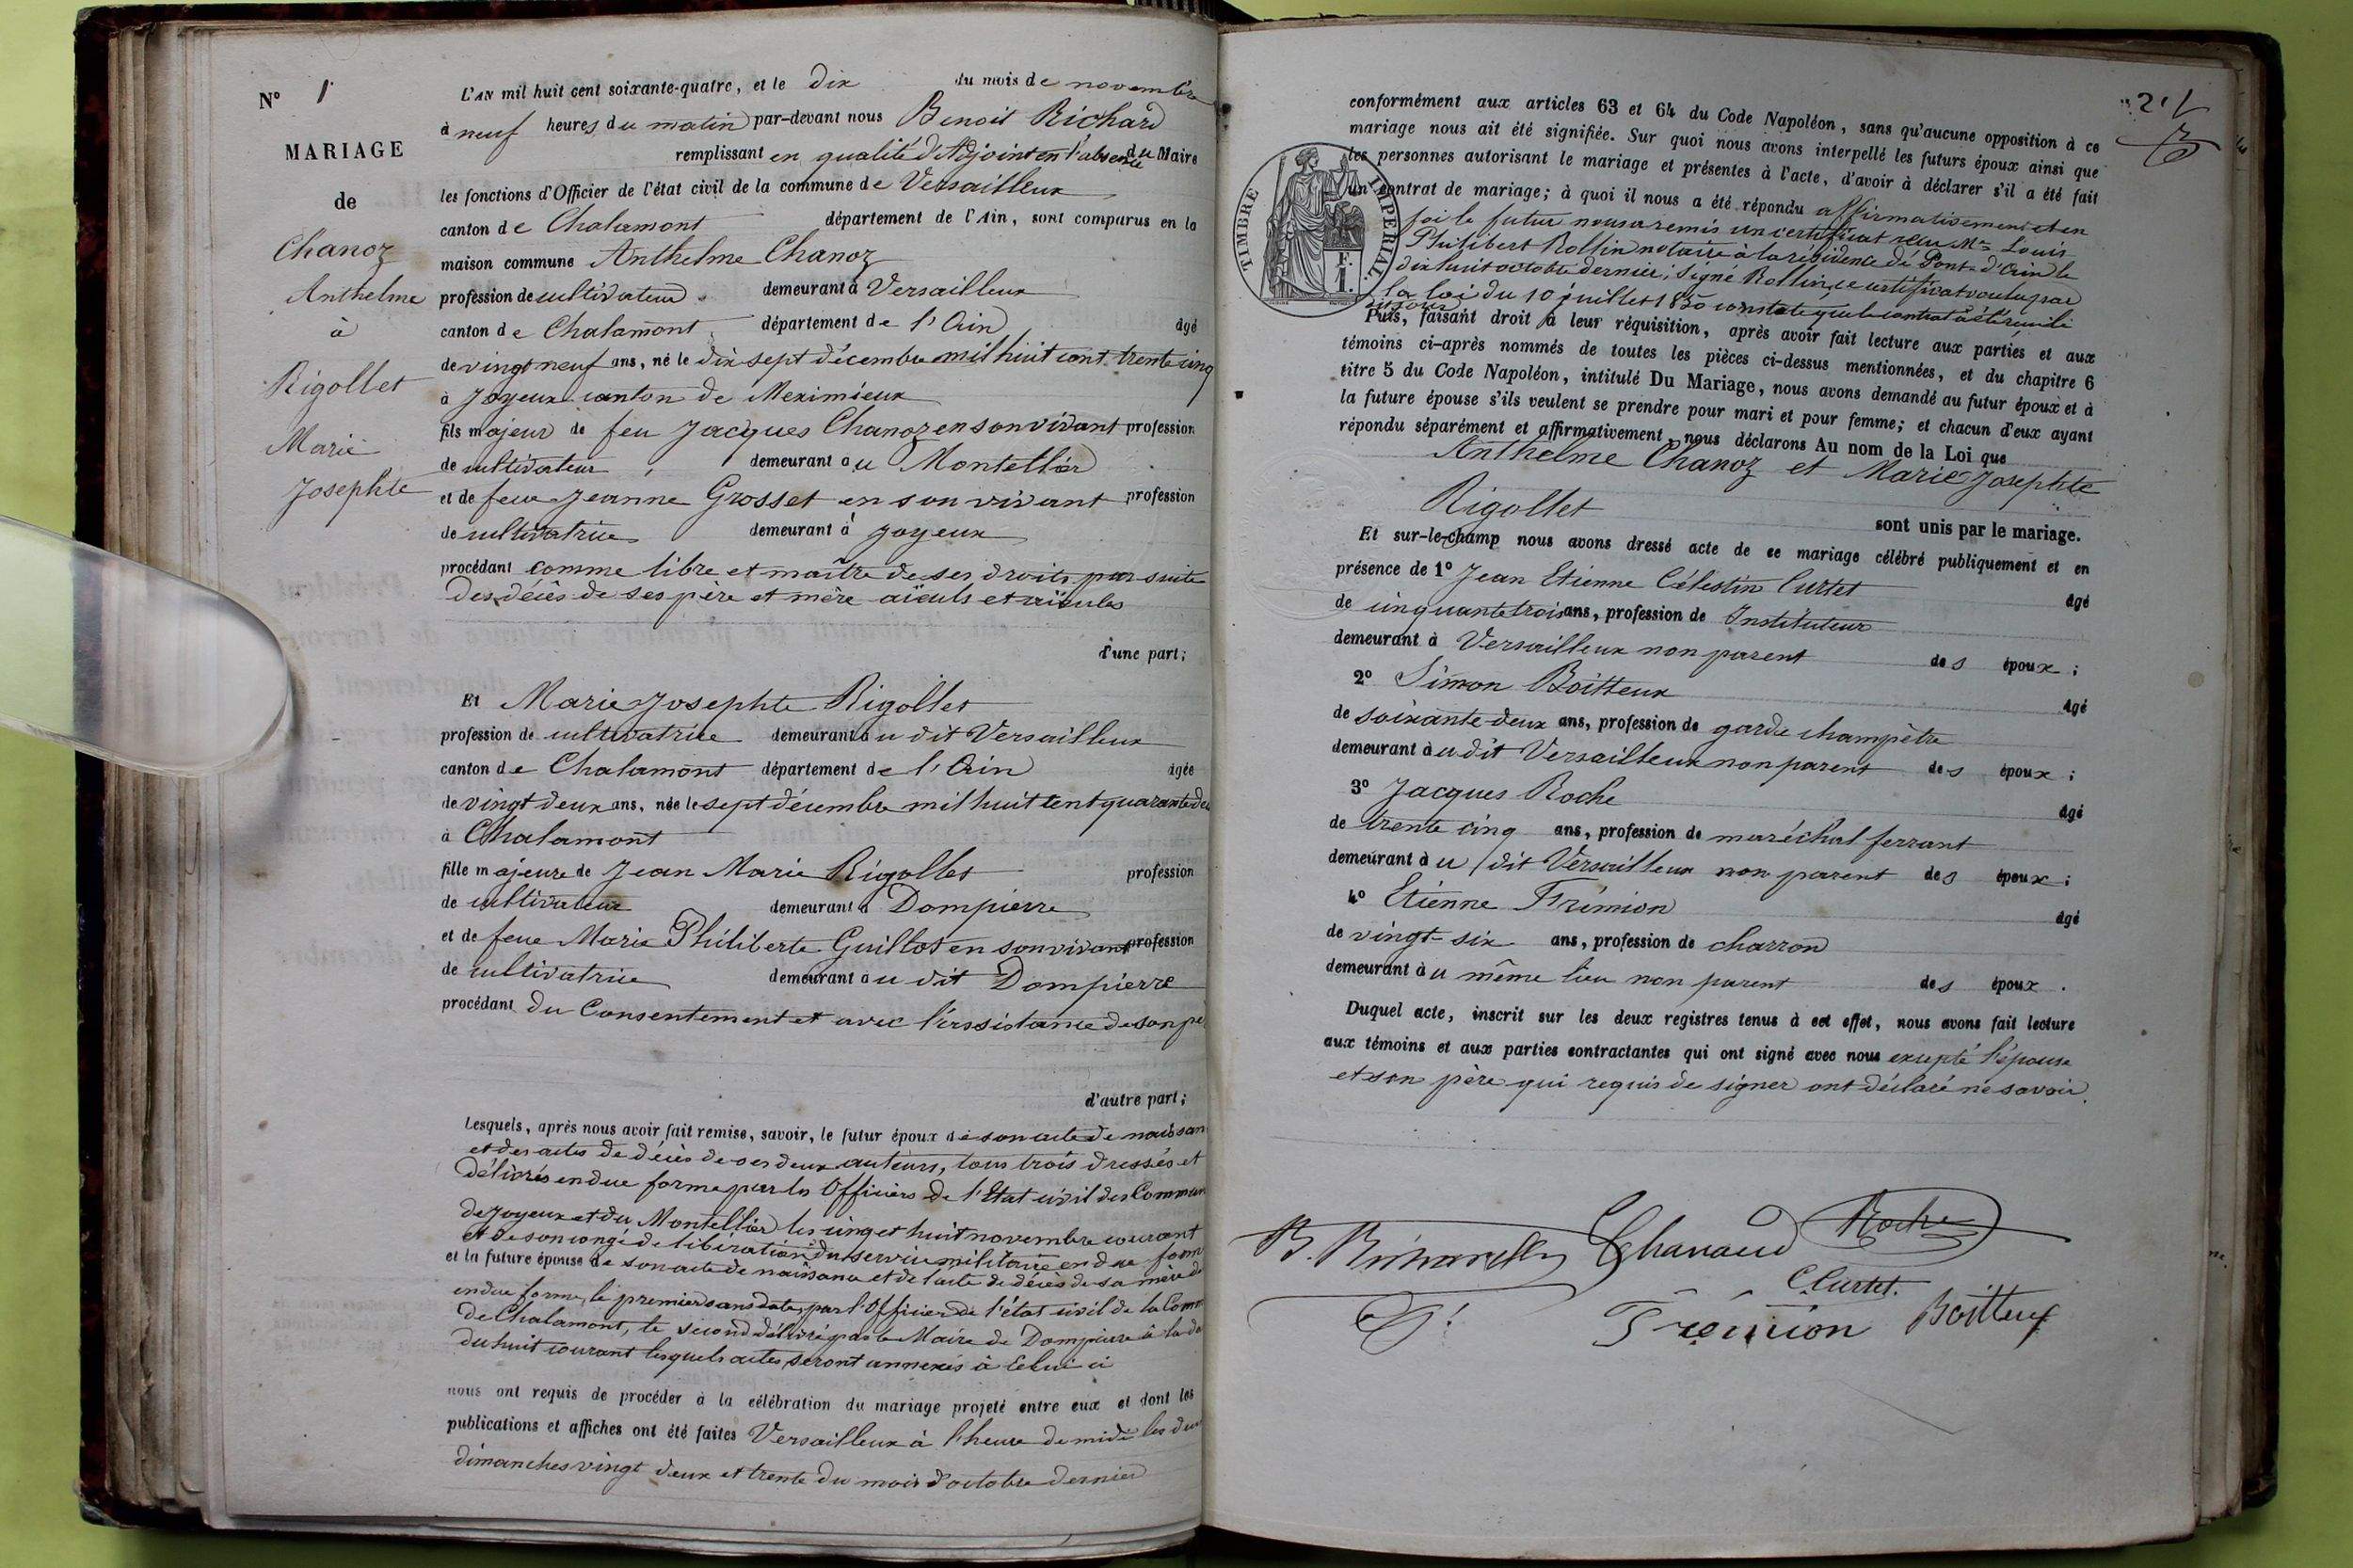 N° 1
MARIAGE
de
Chanoz
Anthelme
à
Rigollet
Marie
Josephte
L'AN mil huit cent soixante-quatre, et le dix du mois de novembre
à neuf heures du matin par-devant nous Benoit Richard
remplissant en qualité d'Adjoint en l'absence du Maire
les fonctions d'Officier de l'état civil de la commune de Versailleux
canton de Chalamont département de l'Ain, sont comparus en la
maison commune Anthelme Chanoz
profession de cultivateur demeurant à Versailleux
canton de Chalamont département de l'Ain âgé
de vingt neuf ans, né le dix sept décembre mil huit cent trente cinq
à Joyeux canton de Meximieux
fils majeur de feu Jacques Chanoz en son vivant profession
de cultivateur demeurant au Montellier
et de feue Jeanne Grosset en son vivant profession
de cultivatrice demeurant à Joyeux
procédant comme libre et maître de ses droits par suite
des décès de ses père et mère aïeuls et aïeules
d'une part;
Et Marie Josephte Rigollet
profession de cultivatrice demeurant au dit Versailleux
canton de Chalamont département de l'Ain âgée
de vingt deux ans, née le sept décembre mil huit cent quarante de
à Chalamont
fille majeure de Jean Marie Rigollet profession
de cultivateur demeurant à Dompierre
et de feue Marie Philiberte Guillot en son vivant profession
de cultivatrice demeurant au dit Dompierre
procédant du Consentement et avec l'assistance de son pè
d'autre part;
Lesquels, après nous avoir fait remise, savoir, le futur époux de son acte de naissan
et des actes de décès de ses deux auteurs, tous trois dressés et
délivrés en due forme par les Officiers de l'Etat civil des Commun
de Joyeux et du Montellier les cinq et huit novembre courant
et de son congé de libération du service militaire en due form
et la future épouse de son acte de naissance et de l'acte de décès de sa mère de
en due forme, le premier sans date, par l'Officier de l'état civil de la Comm
de Chalamont, le second délivré par le Maire de Dompierre à la da
du huit courant lesquels actes seront annexés à celui ci
nous ont requis de procéder à la célébration du mariage projeté entre eux et dont les
publications et affiches ont été faites Versailleux à l'heure de midi les deux
dimanches vingt deux et trente du mois d'octobre dernier
conformément aux articles 63 et 64 du Code Napoléon, sans qu'aucune opposition à ce
mariage nous ait été signifiée. Sur quoi nous avons interpellé les futurs époux ainsi que
les personnes autorisant le mariage et présentes à l'acte, d'avoir à déclarer s'il a été fait
un contrat de mariage; à quoi il nous a été répondu affirmativement et en
foi le futur nous a remis un certificat reçu Me Louis
Philibert Rollin notaire à la résidence de Pont-d'Ain le
dix huit octobre dernier, signé Rollin, ce certificat voulu par
la loi du 10 juillet 1850 constate que le contrat a été reçu le
TIMBRE IMPERIAL.
F. I.
Puis, faisant droit à leur réquisition, après avoir fait lecture aux parties et aux
témoins ci-après nommés de toutes les pièces ci-dessus mentionnées, et du chapitre 6
titre 5 du Code Napoléon, intitulé Du Mariage, nous avons demandé au futur époux et à
la future épouse s'ils veulent se prendre pour mari et pour femme; et chacun d'eux ayant
répondu séparément et affirmativement, nous déclarons Au nom de la Loi que
Anthelme Chanoz et Marie Josephte
Rigollet
sont unis par le mariage.
Et sur-le-champ nous avons dressé acte de ce mariage célébré publiquement et en
présence de 1° Jean Etienne Célestin Curtet âgé
de cinquante trois ans, profession de Instituteur
demeurant à Versailleux non parent des époux;
2° Simon Boitteux âgé
de soixante-deux ans, profession de garde champêtre
demeurant au dit Versailleux non parent des époux;
3° Jacques Roche âgé
de trente cinq ans, profession de maréchal ferrant
demeurant au dit Versailleux non parent des époux;
4° Etienne Frémion âgé
de vingt-six ans, profession de charron
demeurant au même lieu non parent des époux.
Duquel acte, inscrit sur les deux registres tenus à cet effet, nous avons fait lecture
aux témoins et aux parties contractantes qui ont signé avec nous excepté l'épouse
et son père qui requis de signer ont déclaré ne savoir.
B. Richard Chanaud Roche
C. Curtet.
Frémion Boitteux